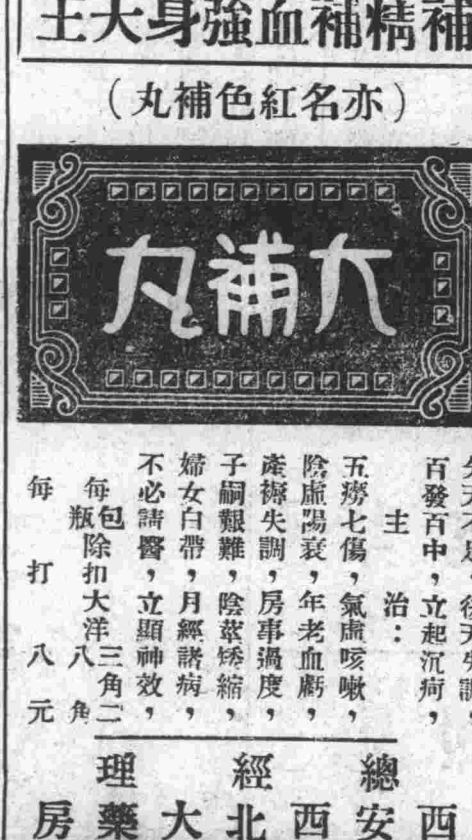 補精補血強身大王
（亦名紅色補丸）
大補丸
百發百中，立起沉疴，
主治：
五癆七傷，氣虛咳嗽，
陰虛陽衰，年老血虧，
產褥失調，房事過度，
子嗣艱難，陰莖矮縮，
婦女白帶，月經諸病，
不必請醫，立顯神效，
每包除扣大洋三角二
每瓶八角
每打八元
總經理
西安西北大藥房